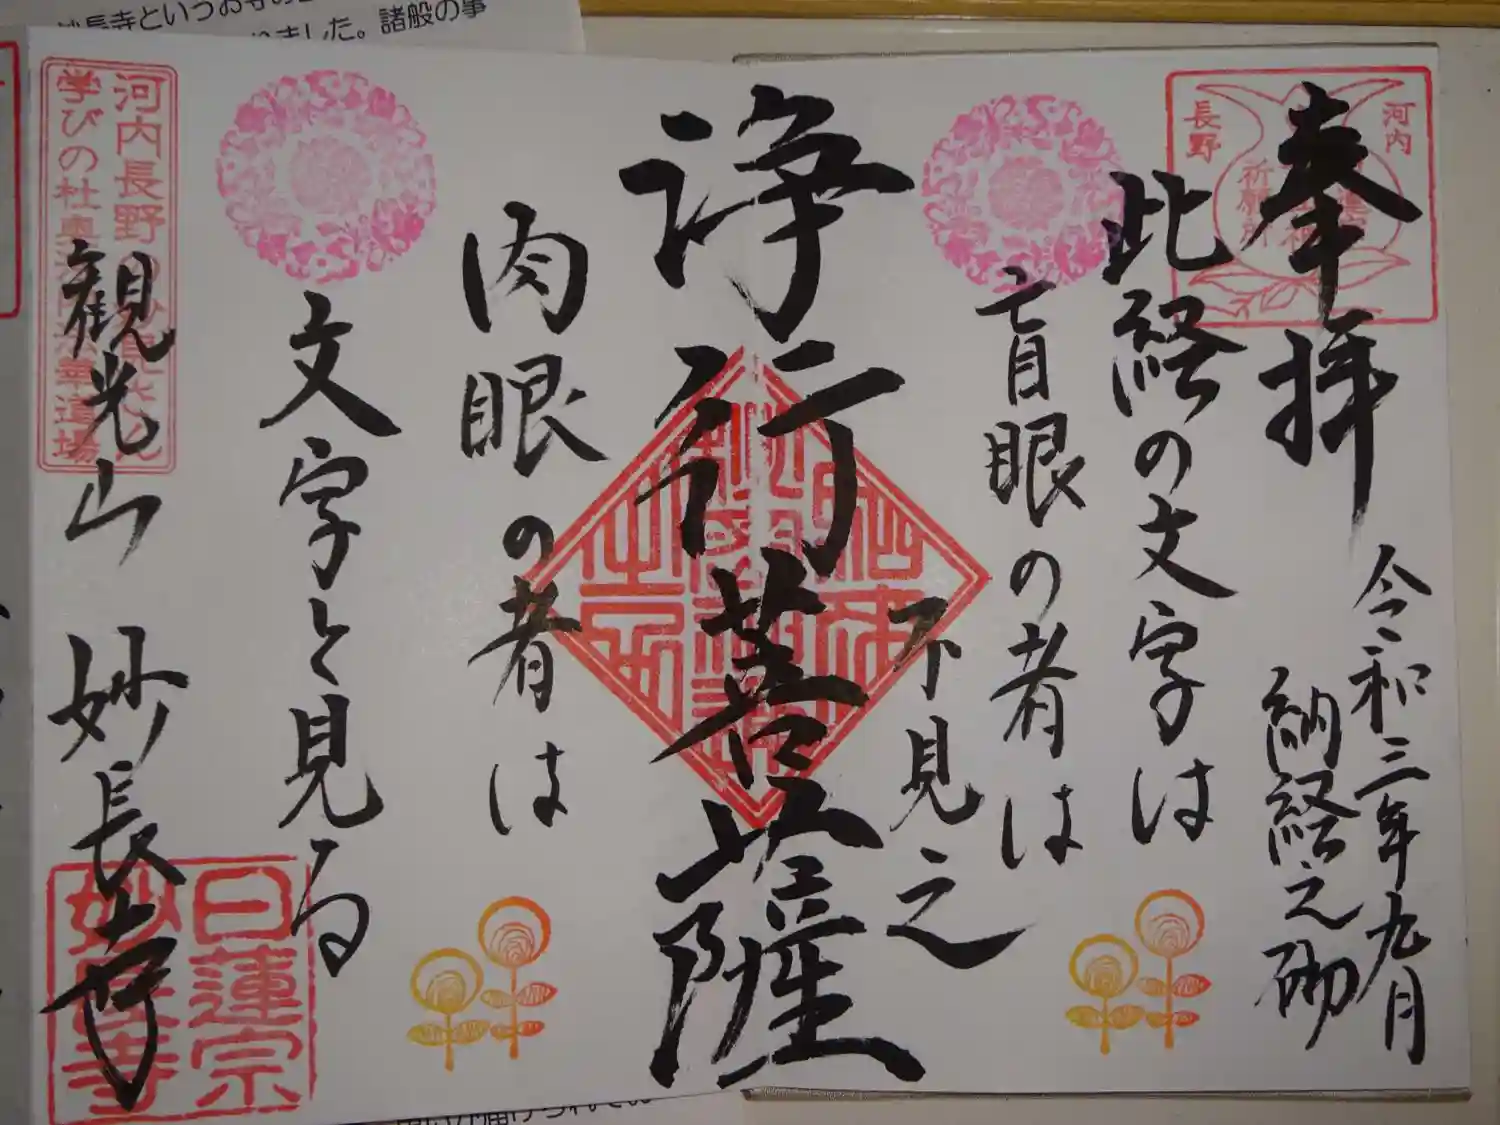 奉拝
令和三年九月
納経之砌
此経の文字は
盲眼の者は
不見之
浄行菩薩
肉眼の者は
文字と見る
観光山 妙長寺
河内
長野
祈願所
河内長野の
学びの杜奥
華道場
日蓮宗
妙長寺
妙長寺というお寺の
ました。諸般の事